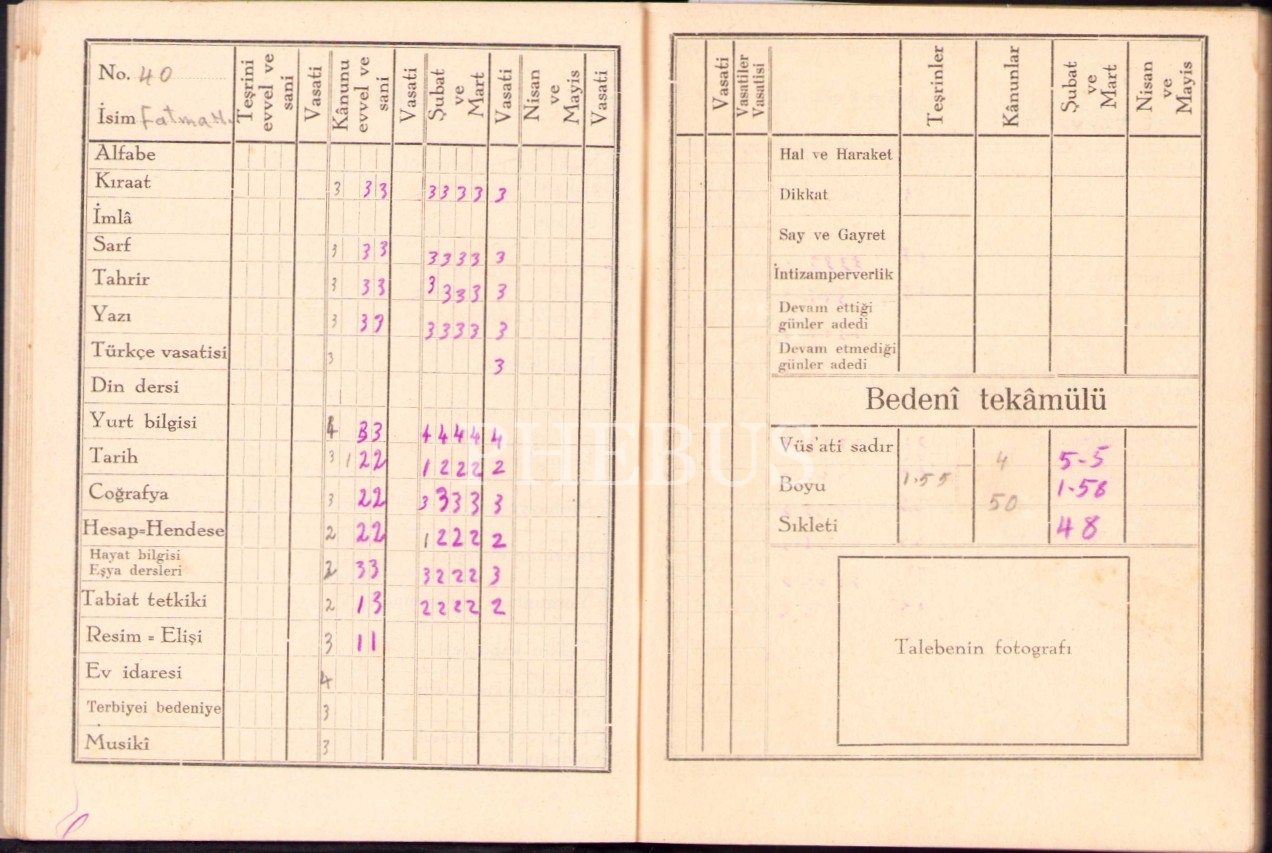 No. 40
İsim Fatma H.
Teşrini evvel ve sani
Vasati
Kânunu evvel ve sani
Vasati
Şubat ve Mart
Vasati
Nisan ve Mayis
Vasati
Alfabe
Kıraat 3 3 3 3 3 3 3 3
İmlâ
Sarf 3 3 3 3 3 3 3 3
Tahrir 3 3 3 3 3 3 3 3
Yazı 3 3 3 3 3 3 3
Türkçe vasatisi 3 3
Din dersi
Yurt bilgisi 4 3 3 4 4 4 4 4
Tarih 3 1 2 2 1 2 2 2 2
Coğrafya 3 2 2 3 3 3 3 3
Hesap=Hendese 2 2 2 1 2 2 2 2
Hayat bilgisi
Eşya dersleri 2 3 3 3 2 2 2 3
Tabiat tetkiki 2 1 3 2 2 2 2 2
Resim = Elişi 3 1 1
Ev idaresi 4
Terbiyei bedeniye 3
Musikî 3
Vasati
Vasatiler Vasatisi
Teşrinler
Kânunlar
Şubat ve Mart
Nisan ve Mayis
Hal ve Haraket
Dikkat
Say ve Gayret
İntizamperverlik
Devam ettiği
günler adedi
Devam etmediği
günler adedi
Bedenî tekâmülü
Vüs'ati sadır 4 5-5
Boyu 1.55 1-58
Sıkleti 50 48
Talebenin fotografı
PHEBUS